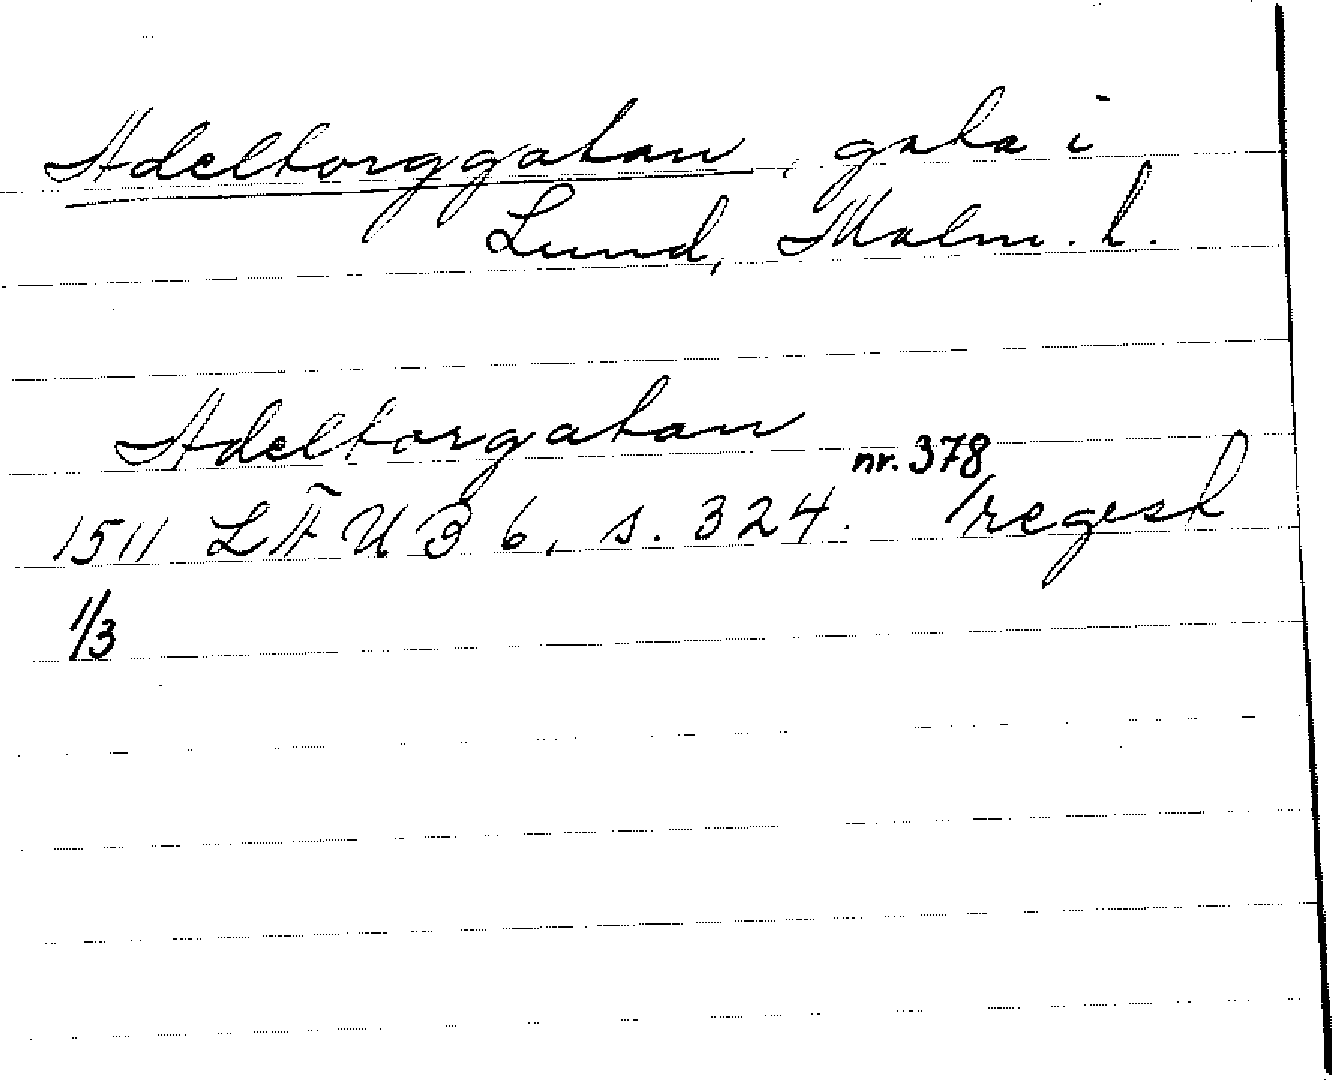 Adelborggatan, gata i
Lund, Malm. l.
Adelborgatan
nr. 378
1511 LÄUB 6, s. 324. /regest
1/3